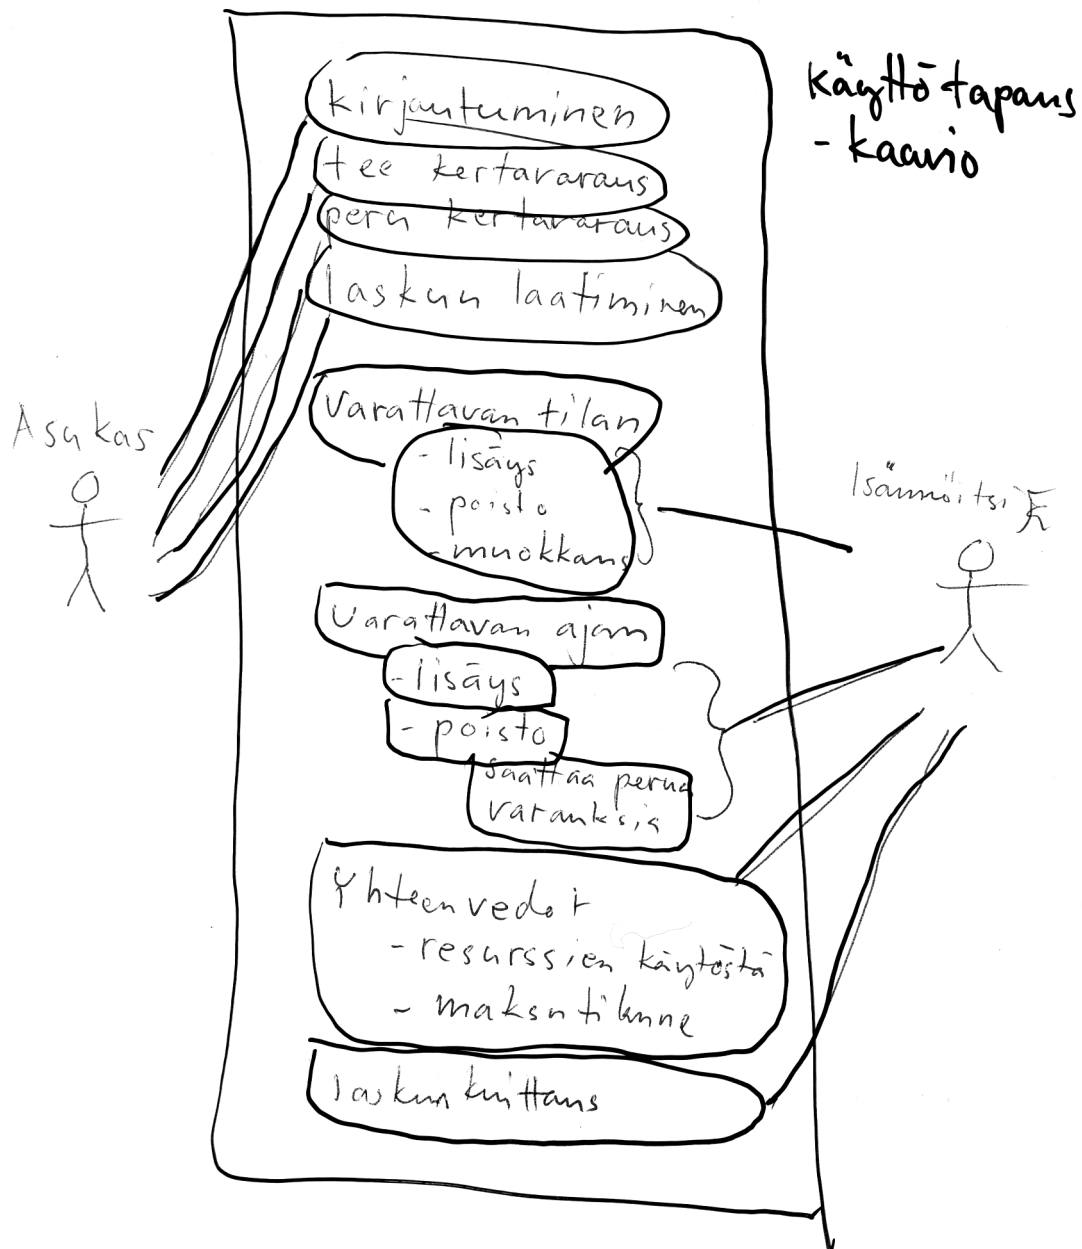 käyttötapaus
- kaavio
kirjautuminen
tee kertavaraus
peru kertavaraus
laskun laatiminen
Asukas
Varattavan tilan
- lisäys
- poisto
- muokkaus
Isännöitsi
Varattavan ajan
- lisäys
- poisto
saattaa perua
varauksia
Yhteenvedot
- resurssien käytöstä
- maksutilanne
laskun kuittaus